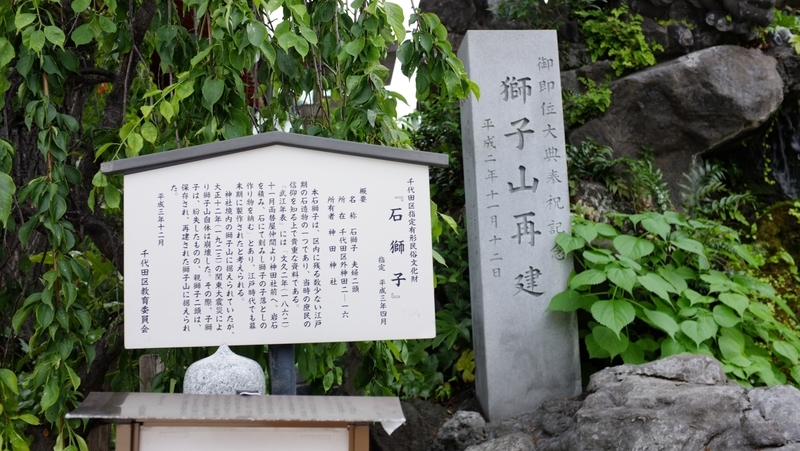 千代田区指定有形民俗文化財
『石獅子』
指定 平成三年四月
概要
名称 石獅子 夫婦二頭
所在 千代田区外神田二―一六
所有者 神田神社
本石獅子は、区内に残る数少ない江戸
期の石造物の一つであり、当時の庶民の
信仰を知る上で貴重な資料である。
『武江年表』には、文久二年（一八六二）
十一月両替屋仲間より神田社前へ、岩石
を積み、石にて刻みし獅子の子落としの
作り物を納む、とあり、江戸時代でも幕
末期に製作されたと考えられる。
神社境内の獅子山に据えられていたが、
大正十二年（一九二三）の関東大震災によ
り獅子山自体は崩壊した。その際、子獅
子は、紛失したものの、親獅子二頭は、
保存され、再建された獅子山に据えられ
た。
平成三年十二月
千代田区教育委員会
御即位大典奉祝記念
獅子山再建
平成二年十一月十二日